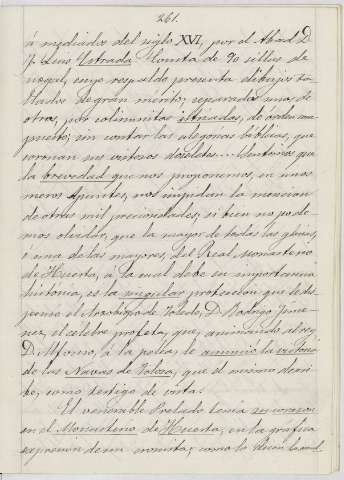 261.
á mediados del siglo XVI, por el Abad D.
F. Luis Estrada. Consta de 90 sillas de
nogal, cuyo respaldo presenta dibujos ta-
llados de gran mérito, separadas unas de
otras, por columnitas istriadas, de órden com-
puesto; sin contar las alegorias bíblicas, que
coronan sus vistosos doseletes... Mentirías que
la brevedad que nos proponemos, en unos
meros apuntes, nos impidan la mencion
de otras mil preciosidades, si bien no pode-
mos olvidar, que la mayor de todas las glorias,
ó una de las mayores, del Real Monasterio
de Huerta, á la cual debe su importancia
histórica, es la singular proteccion que le dis-
pensó el Arzobispo de Toledo, D. Rodrigo Jime-
nez, el célebre profeta, que, animando al rey
D. Alfonso, á la pelea, le anunció la victoria
de las Navas de Tolosa, que el mismo descri-
be, como testigo de vista.
El venerable Prelado tenía su corazon
en el Monasterio de Huerta, en la gráfica
expresion de un cronista; como lo